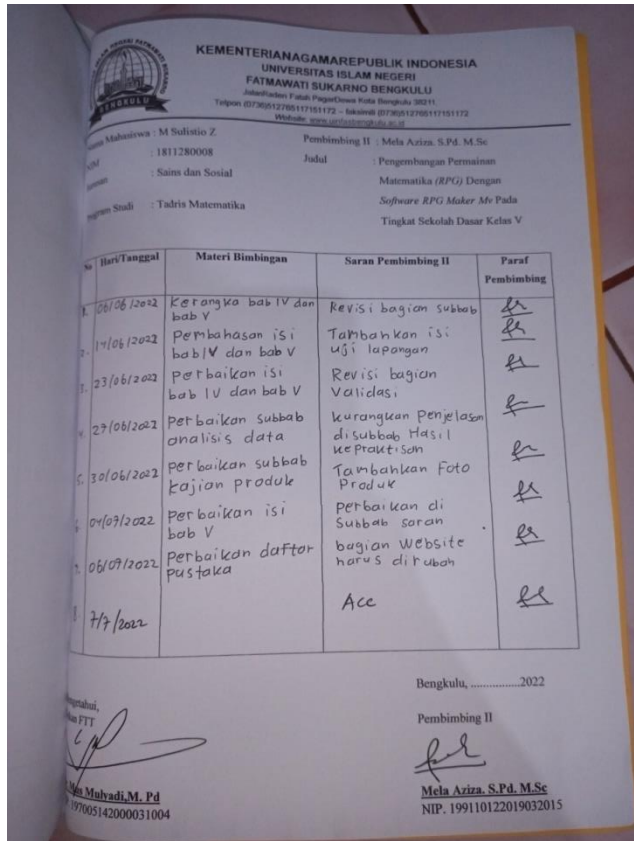 KEMENTERIANAGAMAREPUBLIK INDONESIA
UNIVERSITAS ISLAM NEGERI
FATMAWATI SUKARNO BENGKULU
JalanRaden Fatah PagarDewa Kota Bengkulu 38211
Telpon (0736)512765117151172 – faksimili (0736)512765117151172
Website: www.uinfasbengkulu.ac.id
BENGKULU
Mahasiswa : M Sulistio Z
NIM : 1811280008
: Sains dan Sosial
Program Studi : Tadris Matematika
Pembimbing II : Mela Aziza. S.Pd. M.Sc
Judul : Pengembangan Permainan
Matematika (RPG) Dengan
Software RPG Maker Mv Pada
Tingkat Sekolah Dasar Kelas V
No Hari/Tanggal Materi Bimbingan Saran Pembimbing II Paraf
Pembimbing
1. 06/06/2022 Kerangka bab IV dan Revisi bagian subbab
bab V
2. 14/06/2022 Pembahasan isi Tambahkan isi
bab IV dan bab V uji lapangan
3. 23/06/2022 Perbaikan isi Revisi bagian
bab IV dan bab V Validasi
4. 27/06/2022 Perbaikan subbab kurangkan Penjelasan
analisis data disubbab Hasil
kepraktisan
5. 30/06/2022 Perbaikan subbab Tambahkan Foto
kajian produk Produk
04/07/2022 Perbaikan isi perbaikan di
bab V Subbab saran
06/07/2022 Perbaikan daftar bagian Website
pustaka harus dirubah
7/7/2022 Acc
Bengkulu, ................2022
FTT
Pembimbing II
Mulyadi,M. Pd
197005142000031004
Mela Aziza. S.Pd. M.Sc
NIP. 199110122019032015